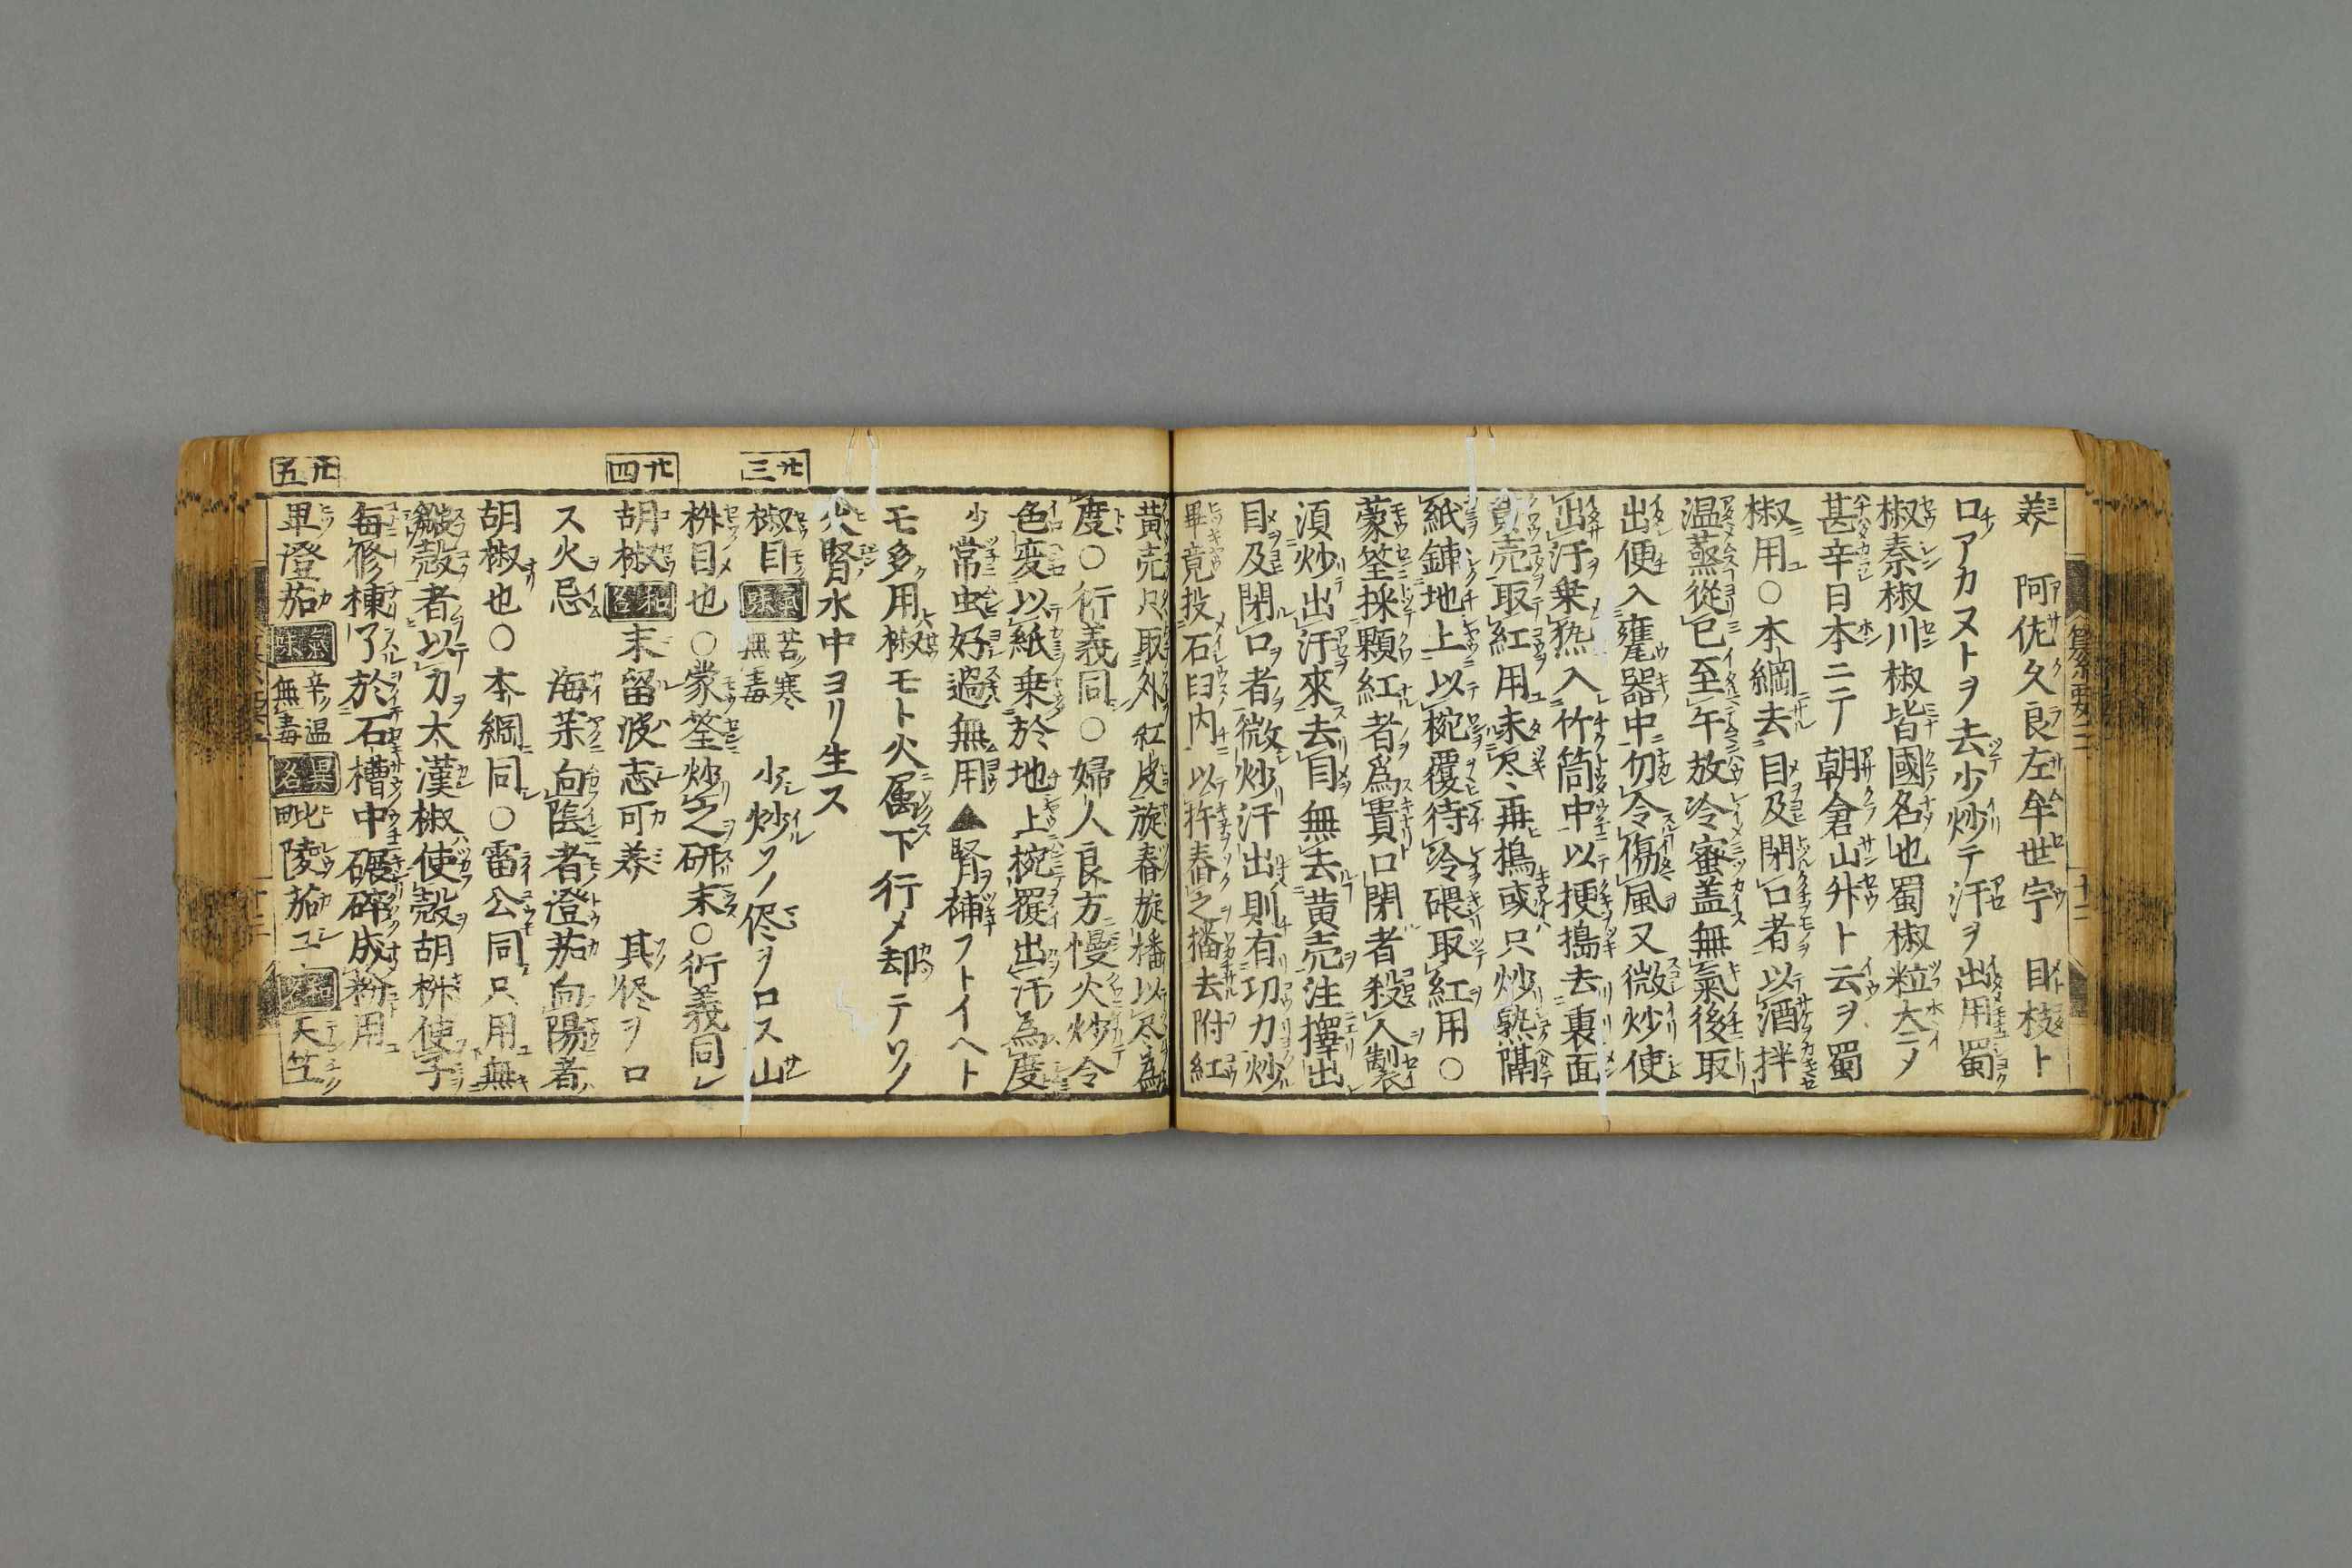 养 阿佐久良左牟世宇 目枝ト
口アカヌトヲ去少炒テ汗ヲ出用蜀
椒秦椒川椒皆國名也蜀椒粒大ニメ
甚辛日本ニテ朝倉山舛ト云ヲ蜀
椒用○本綱去目及閉口者以酒拌
温蒸從巳至午放冷蜜盖無氣後取
出便入甕器中勿令傷風又微炒使
出汗乗𤍠入竹筒中以梗搗去裏面
黄売取紅用未尽再搗或只炒熟隔
紙鋪地上以椀覆待冷碾取紅用○
蒙筌採顆紅者爲貴口閉者殺人製
湏炒出汗來去目無去黄売注擇出
目及閉口者微炒汗出則有功力炒
畢竟投石臼内以杵舂之播去附紅
黄売只取外紅皮旋舂旋播以尽為
度○衍義同○婦人良方慢火炒令
色変以紙乗於地上椀覆出汗為度
少常虫好過無用▲腎補フトイヘト
モ多用椒モト火属下行メ却テソノ
火腎水中ヨリ生ス
三廿
椒目 氣味 苦寒無毒 少炒ソノ侭ヲロス山
枡目也○蒙筌炒之研末○衍義同レ
四廿
胡椒 和名 末留波志可养 其侭ヲロ
ス火忌 海茱向陰者澄茄向陽者
胡椒也○本綱同○雷公同只用無
皺殻者以力大漢椒使殻胡枡使子
毎修棟了於石槽中碾碎成粉用
五廿
畢澄茄 氣味 辛温無毒 異名 毗陵茄 和名 天笁